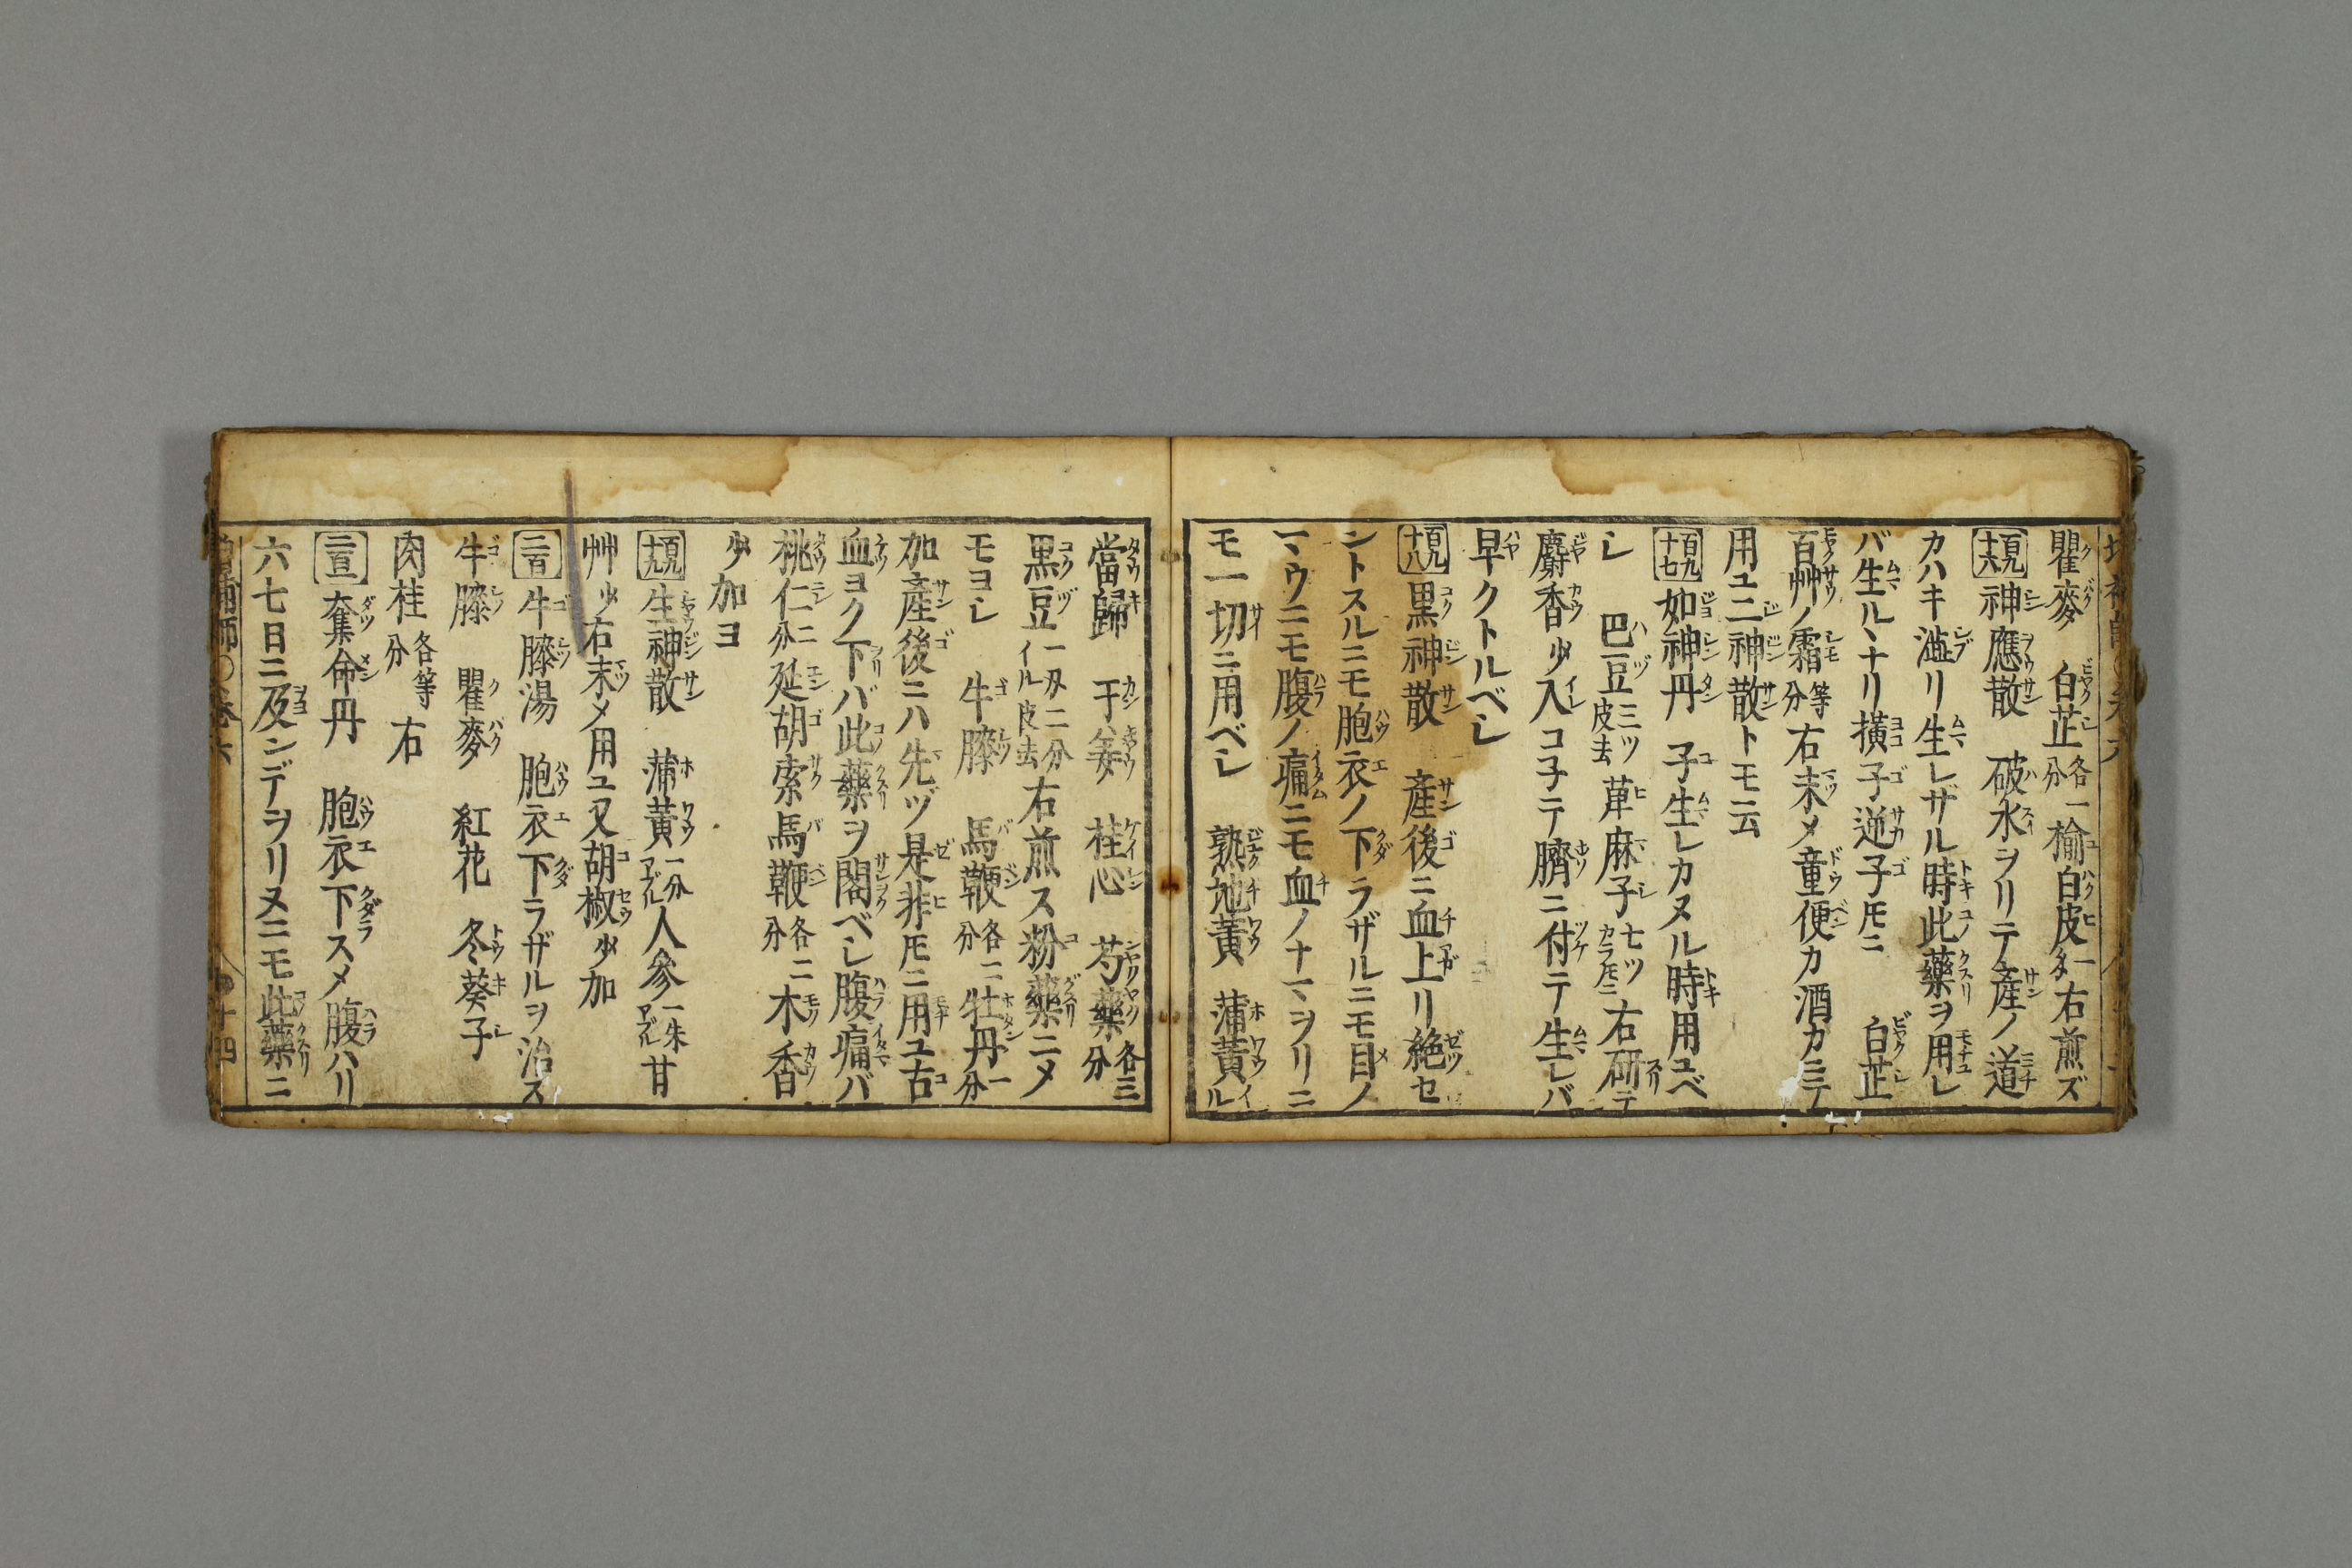 瞿麥 白芷各一分 榆白皮一タ右煎ズ
百九十六 神應散 破水ヲリテ產ノ道
カハキ澁リ生レザル時此藥ヲ用レ
バ生ルヽナリ橫子逆子𪜈ニ 白芷
百艸ノ霜等分右末メ童便カ酒カニテ
用ユ二神散トモ云
百九十七 如神丹 子生レカヌル時用ユベ
シ 巴豆三ツ皮去 萆麻子七ツカラ𪜈ニ右研テ
麝香少入コ子テ臍ニ付テ生レバ
早クトルベシ
百九十八 黒神散 產後ニ血上リ絶セ
ントスルニモ胞衣ノ下ラザルニモ目ノ
マウニモ腹ノ痛ニモ血ノナヤヲリニ
モ一切ニ用ベシ 熟地黃 蒲黃イル
當歸 干姜 桂心 芍藥各三分
黒豆一匁二分イル皮去右煎ス粉藥ニメ
モヨシ 牛膝 馬鞭各二分牡丹一分
加產後ニハ先ヅ是非𪜈ニ用ユ古
血ヨク下バ此藥ヲ閣ベシ腹痛バ
桃仁二分延胡索馬鞭各二分木香
少加ヨ
百九十九 生神散 蒲黃一分アブル人參一朱アブル甘
艸少右末メ用ユ又胡椒少加
二百 牛膝湯 胞衣下ラザルヲ治ス
牛膝 瞿麥 紅花 冬葵子
肉桂各等分 右
二百一 奪命丹 胞衣下スメ腹ハリ
六七日ニ及ンデヲリヌニモ此藥ニ
卷六
四十四